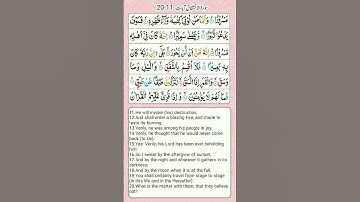 سورۃ الانشقاق آیات 11-20
مَسْرُورًا وَأَمَّا مَنْ أُوتِيَ كِتٰبَهُ وَرَآءَ ظَهْرِهِ فَسَوْفَ
يَدْعُوا ثُبُورًا وَيَصْلٰى سَعِيرًا إِنَّهُ كَانَ فِيٓ أَهْلِهِ
مَسْرُورًا إِنَّهُ ظَنَّ أَنْ لَّنْ يَّحُورَ بَلٰى إِنَّ رَبَّهُ كَانَ
بِهِ بَصِيرًا فَلَآ أُقْسِمُ بِالشَّفَقِ وَالَّيْلِ وَمَا
وَسَقَ وَالْقَمَرِ إِذَا اتَّسَقَ لَتَرْكَبُنَّ طَبَقًا عَنْ طَبَقٍ
فَمَا لَهُمْ لَا يُؤْمِنُونَ وَإِذَا قُرِئَ عَلَيْهِمُ الْقُرْاٰنُ
11.He will invoke (his) destruction,
12.And shall enter a blazing Fire, and made to
taste its burning.
13.Verily, he was among his people in joy
14.Verily, he thought that he would never come
back (to Us)
15.Yes! Verily, his Lord has been ever beholding
him
16.So I swear by the afterglow of sunset;
17.And by the night and whatever it gathers in its
darkness;
18.And by the moon when it is at the full,
19.You shall certainly travel from stage to stage
(in this life and in the Hereafter).
20.What is the matter with them, that they believe
not?